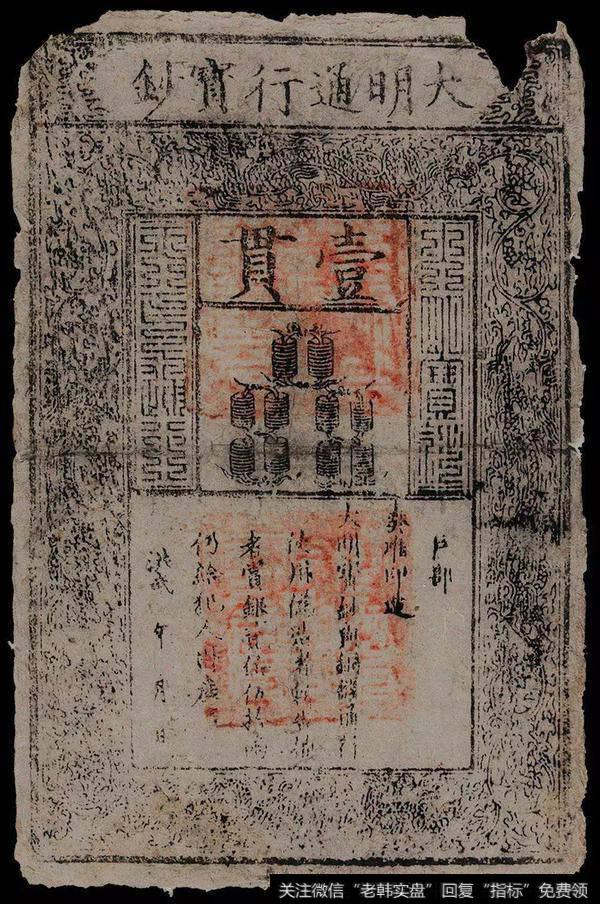 大明通行寶鈔
壹貫
大明寶鈔
天下通行
戶部
奏准印造
大明寶鈔與銅錢通行
使用偽造者斬告捕
者賞銀貳伯伍拾兩
仍給犯人財產
洪武 年 月 日
关注微信 "老韩实盘" 回复 "指标" 免费领